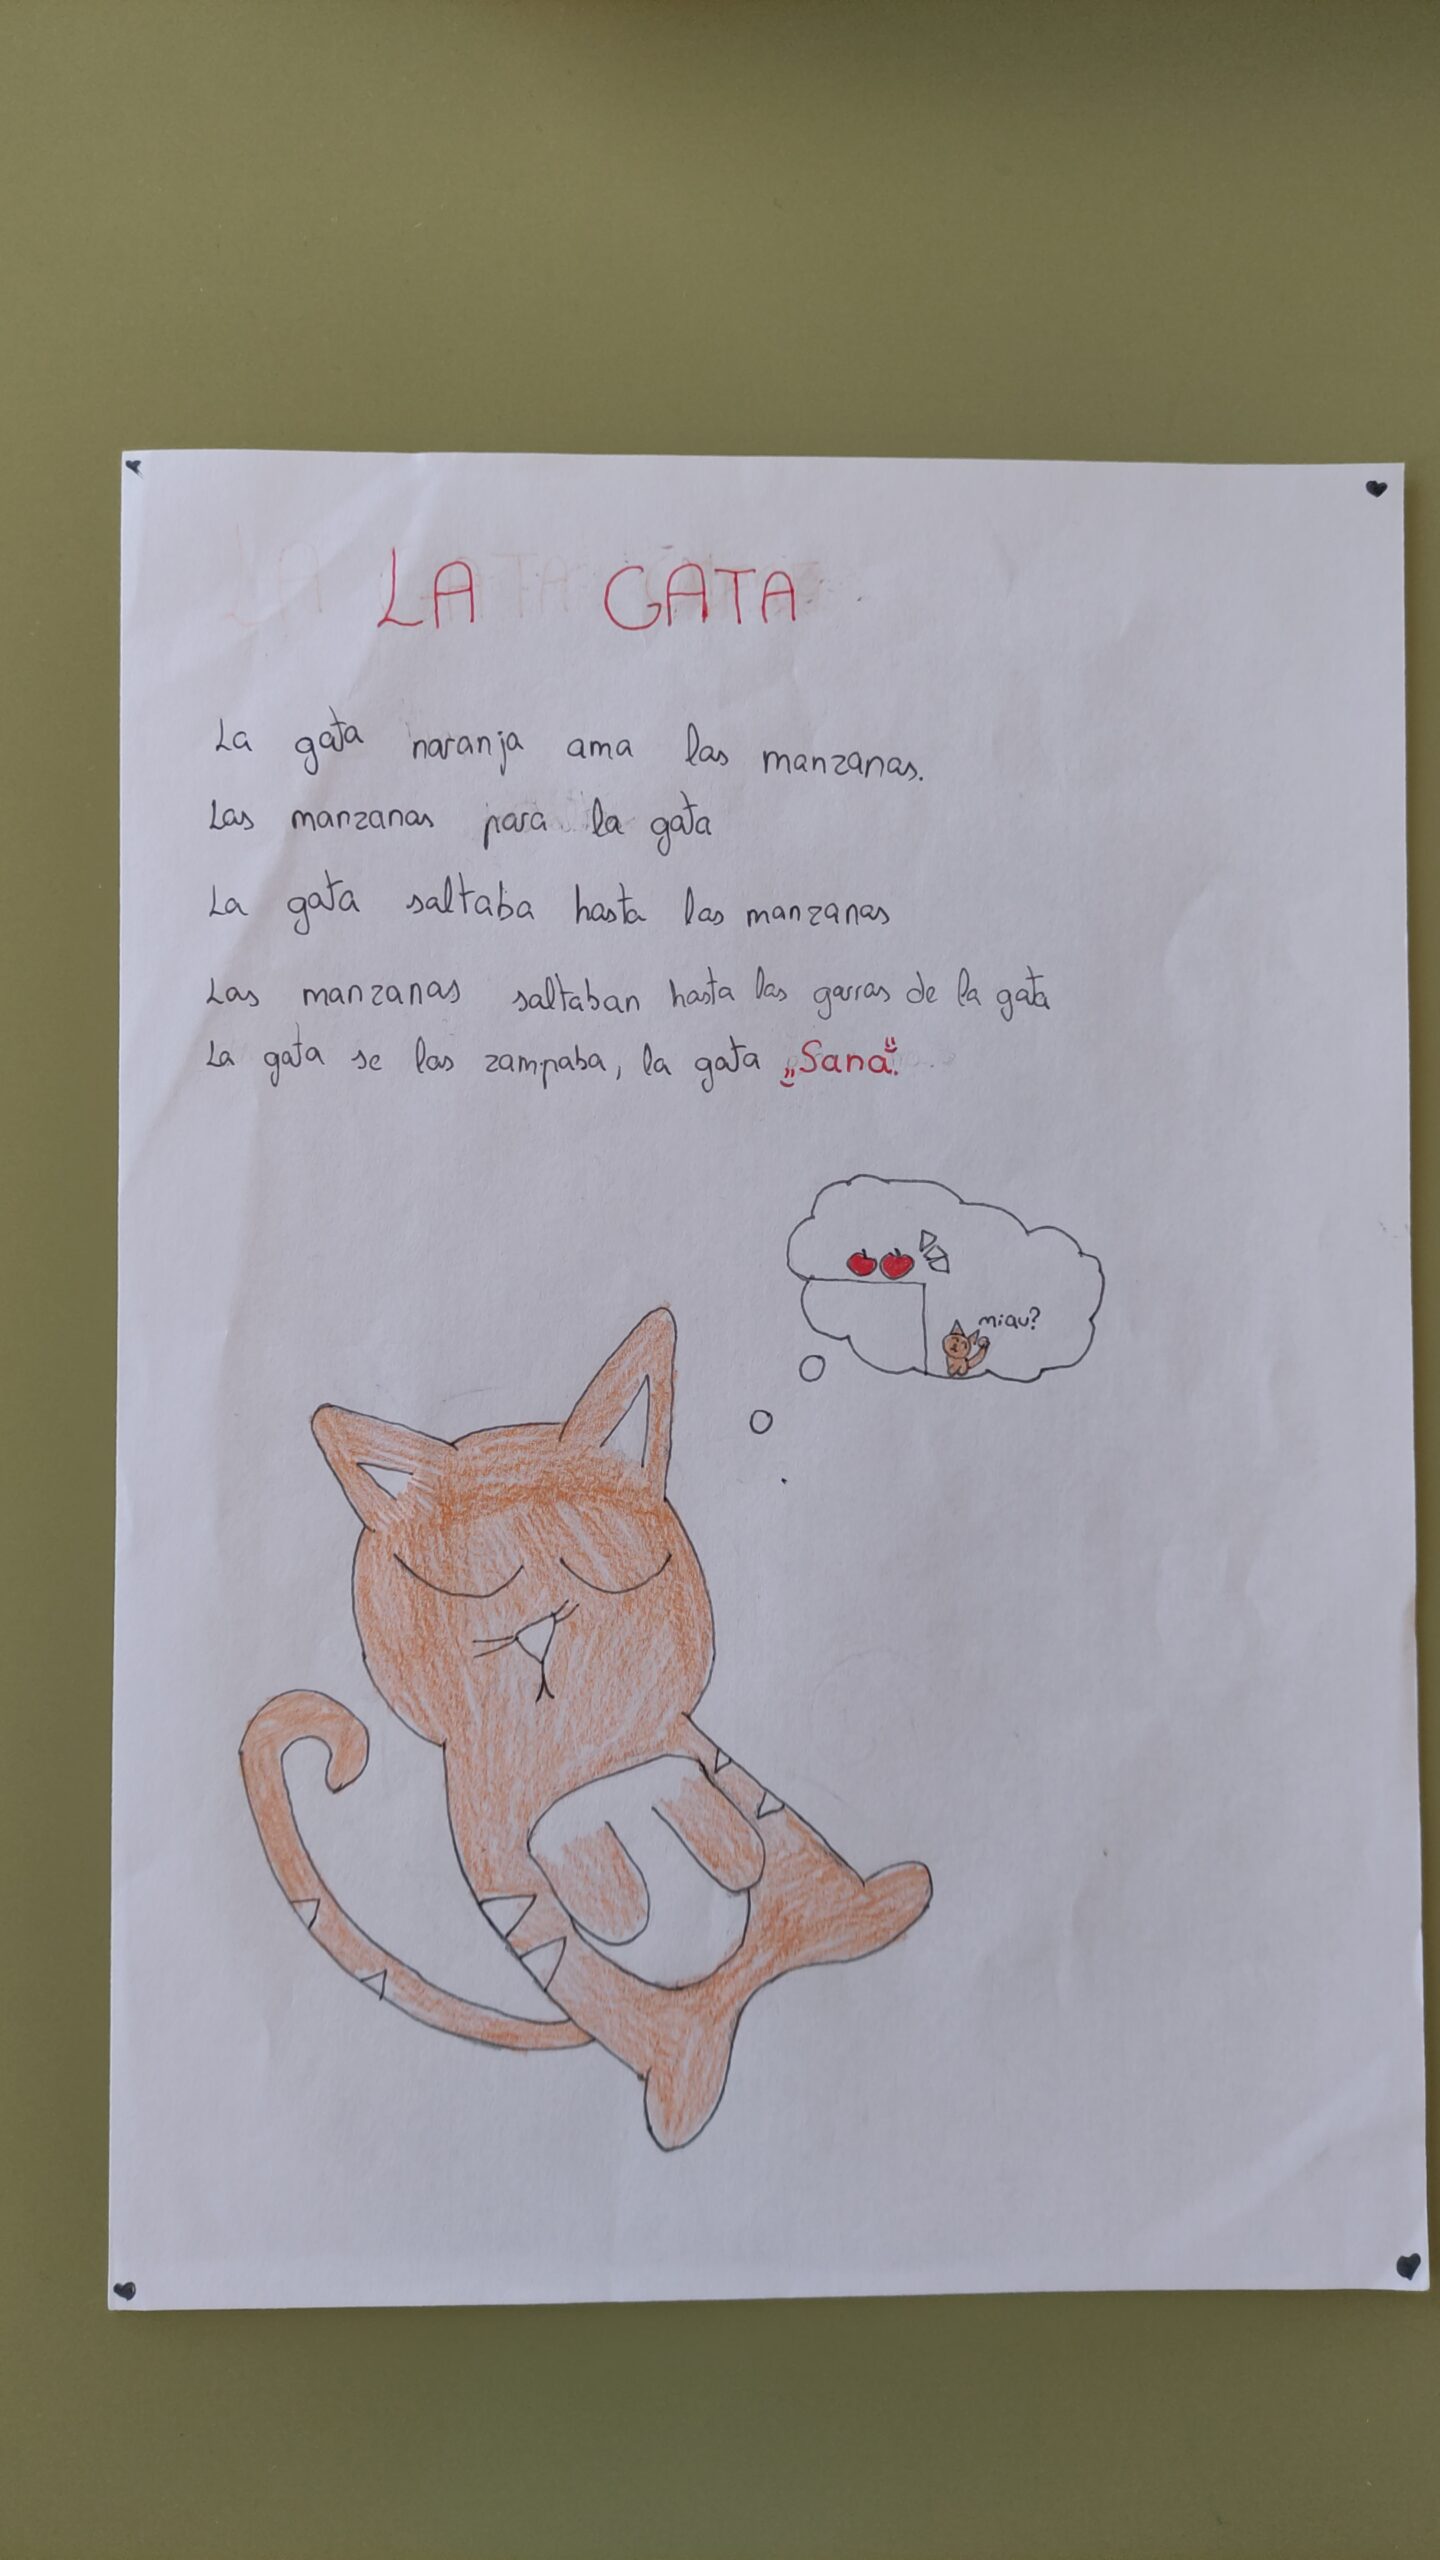 LA GATA
La gata naranja ama las manzanas.
Las manzanas para la gata
La gata saltaba hasta las manzanas
Las manzanas saltaban hasta las garras de la gata
La gata se las zampaba, la gata „Sana".
miau?